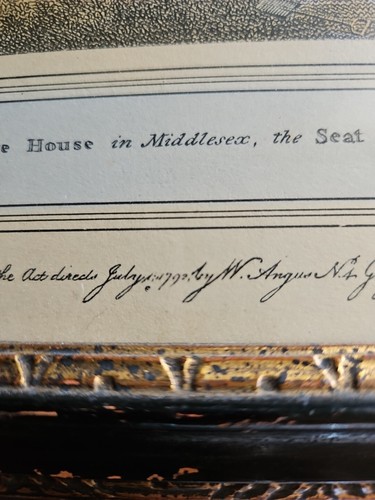 e House in Middlesex, the Seat
he Act directs July 1, 1792, by W. Angus No. 4 G